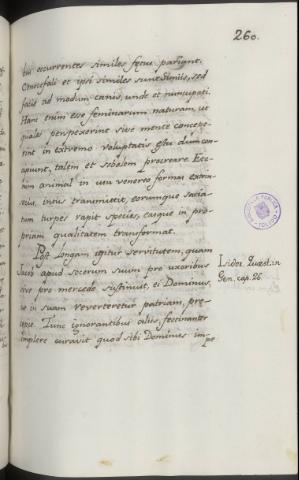 260.
tui occurrentes similes fętus pariant.
Cynocefali et ipsi similes sunt simiis, sed
facie ad modum canis, unde et nuncupati.
Hanc enim esse feminarum naturam, ut
quales perspexerint sive mente concepe-
rint in extremo voluptatis ęstu dum con-
cipiunt, talem et sobolem procreare. Ete-
nim animal in usu venereo formas extrin-
secus, intus transmittit, eorumque satia-
tum typis rapit species, easque in pro-
priam qualitatem transformat.
Post longam igitur servitutem, quam
Jacob apud socerum suum pro uxoribus
sive pro mercede sustinuit, ei Dominus,
ut in suam reverteretur patriam, prę-
cepit. Tunc ignorantibus aliis, festinanter
implere curavit quod sibi Dominus im-
pe
Isidor. Quæst. in
Gen. cap. 26.